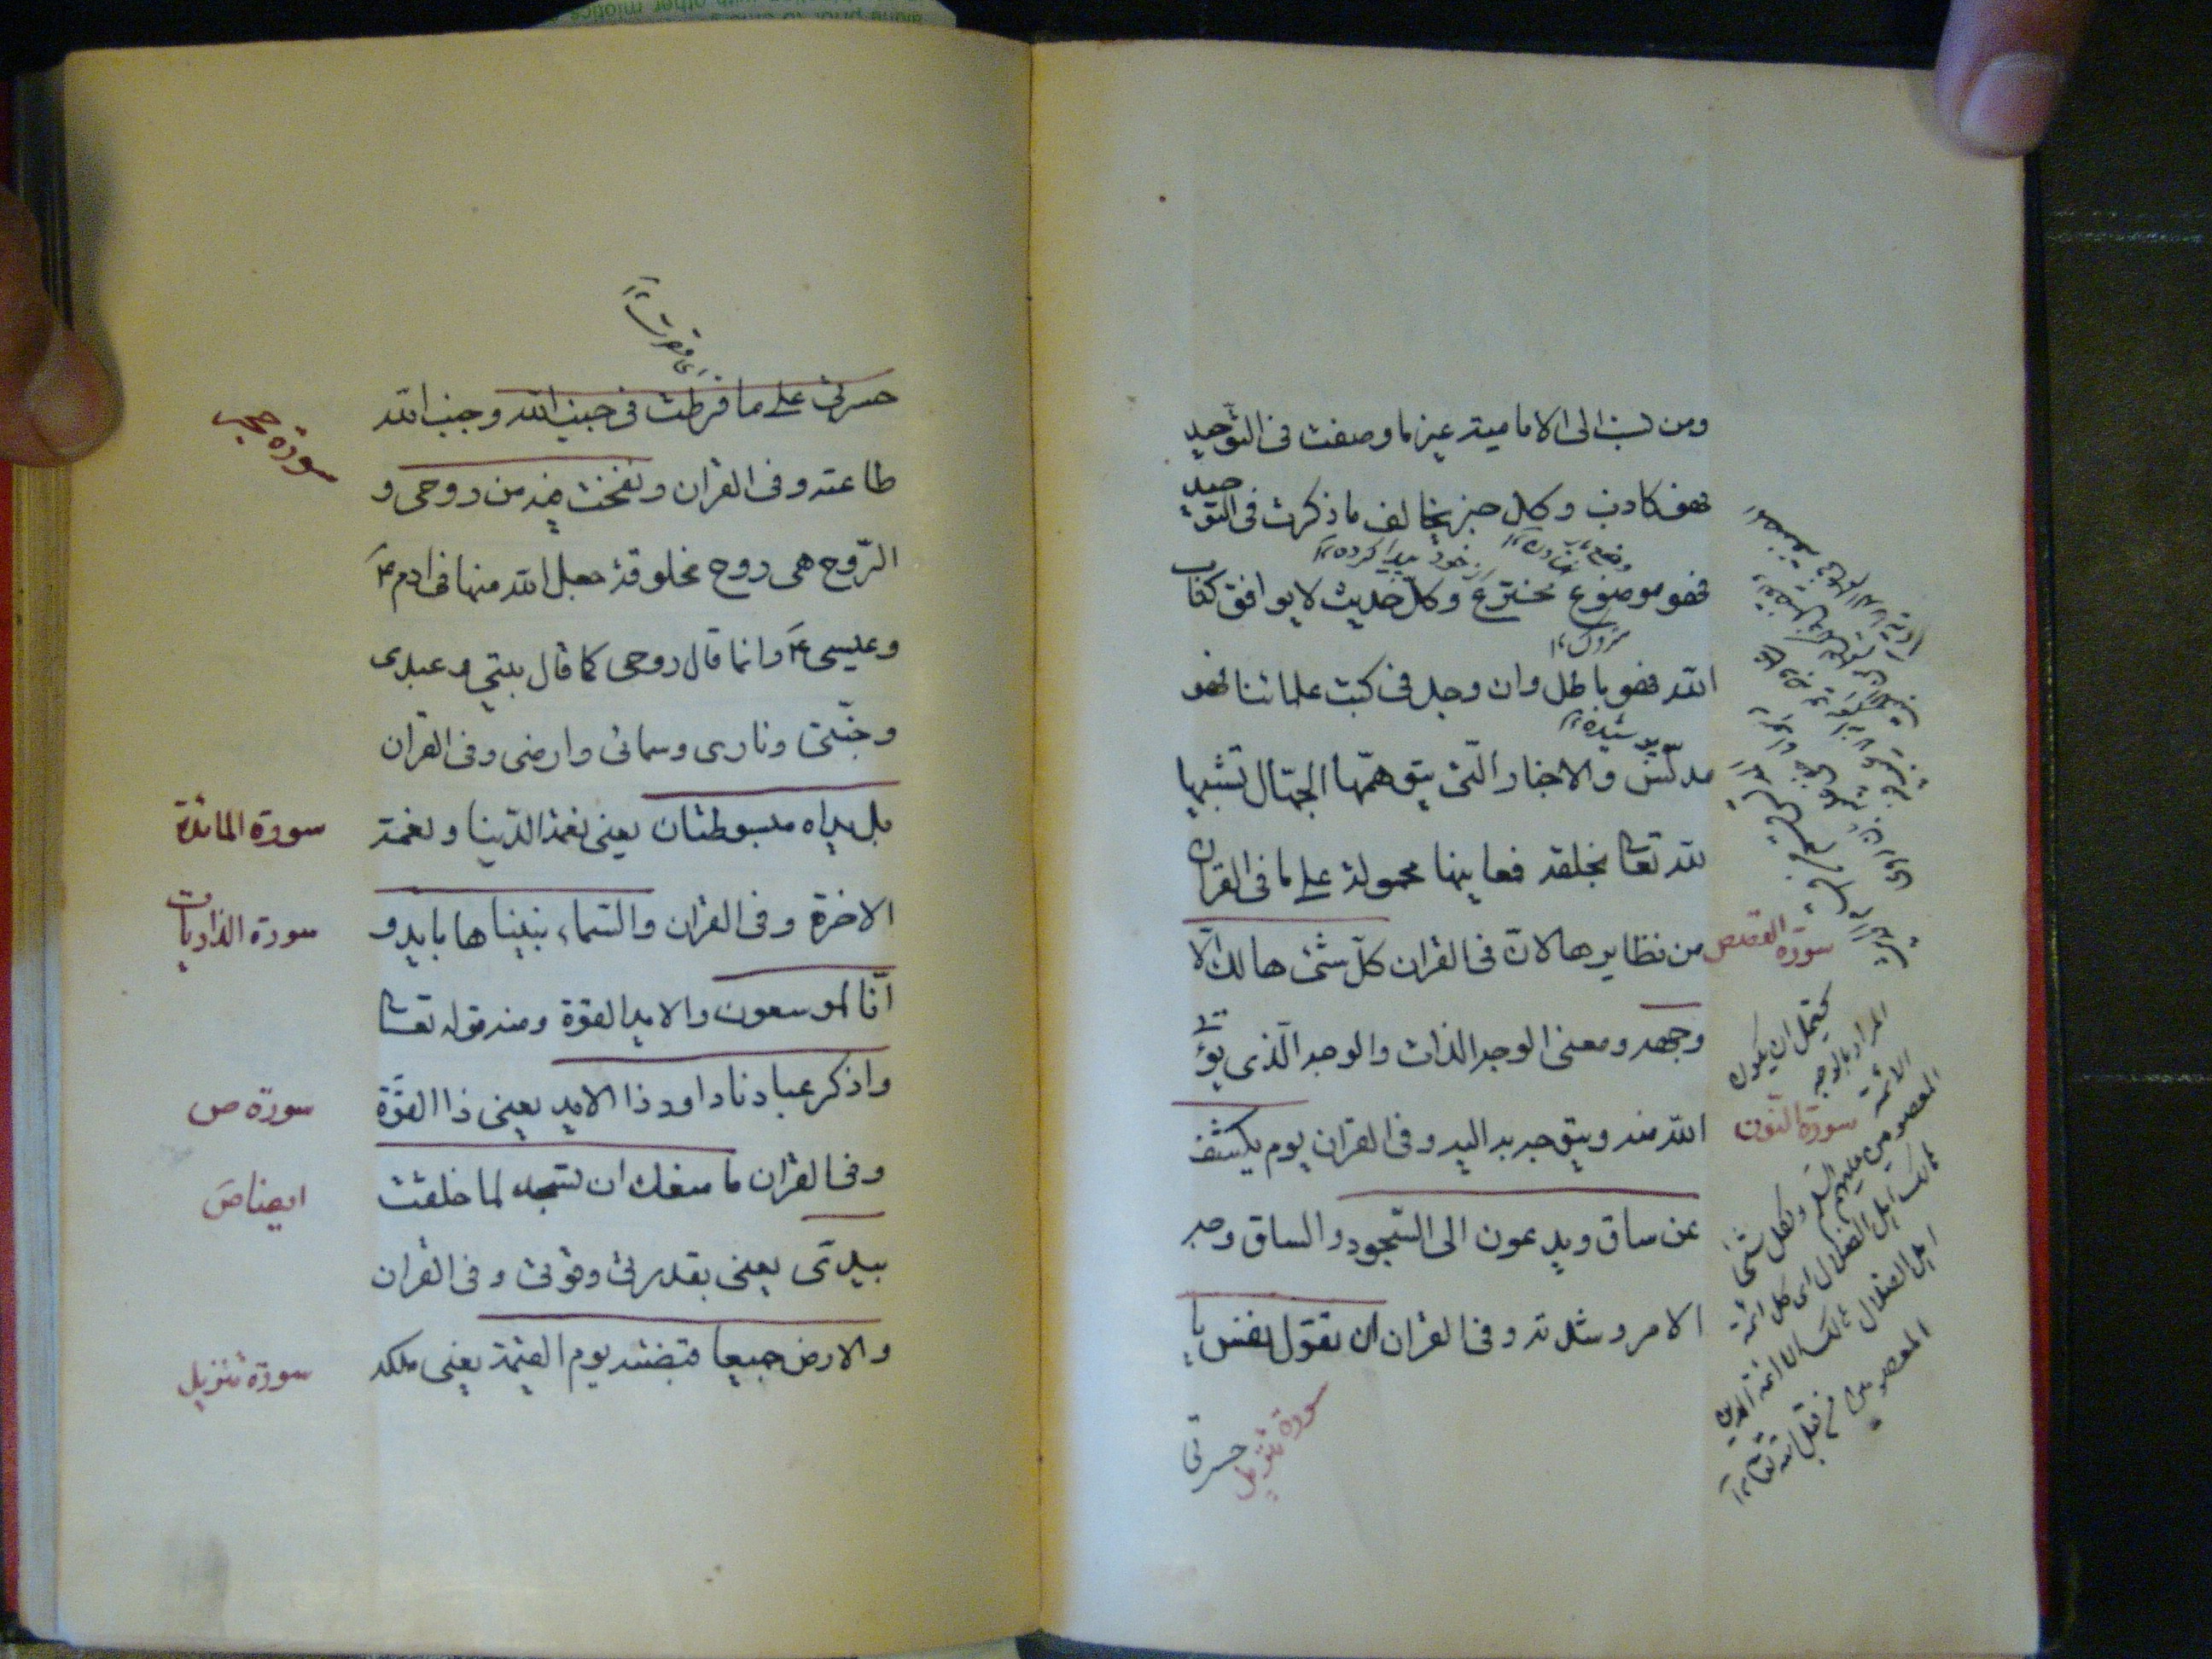 ومن نسب الى الامامية غير ما وصفت فى التوحيد
فهو كاذب وكل خبر يخالف ما ذكرت فى التوحيد
فهو موضوع مخترع وكل حديث لا يوافق كتاب
الله فهو باطل وان وجد فى كتب علمائنا فهو
مدلّس والاخبار الّتى يتوهمّها الجهّال تشبيها
لله تعالى بخلقه فمعانيها محمولة على ما فى القران
من نظايرها لانّ فى القران كلّ شئ هالك الّا
سورة القصص
وجهه ومعنى الوجه الذات والوجه الّذى يؤتى
الله منه ويتوجه به اليه وفى القران يوم يكشف
سورة النون
عن ساق ويدعون الى السّجود والساق وجه
الامر وشدته وفى القران ان تقول نفس يا
سورة تنزيل
حسرتى
خود پيدا كرده
پوشيده
يحتمل ان يكون
المراد بالوجه
الائمة
المعصومين عليهم
السلم وكل شئ
هالك اهل الضلال اى كل ائمة
اهل الضلال هالك الا ائمة الدين
المعصومين من قبل الله تعالى ١٢
حسرتى على ما فرطت فى جنب الله وجنب الله
طاعته وفى القران ونفخت فيه من روحى و
سورة حجر
الرّوح هى روح مخلوقة جعل الله منها فى ادم ع
وعيسى ع وانما قال روحى كما قال بيتى وعبدى
وجنّتى ونارى وسمائى وارضى وفى القران
بل يداه مبسوطتان يعنى نعمة الدّنيا ونعمة
سورة المائدة
الاخرة وفى القران والسّماء بنيناها بايد و
سورة الذاريات
انّا لموسعون والايد القوّة ومنه قوله تعالى
واذكر عبادنا داود ذا الايد يعنى ذا القوّة
سورة ص
وفى القران ما منعك ان تسجد لما خلقت
ايضا ص
بيدىّ يعنى بقدرتى وقوتى وفى القران
والارض جميعا قبضته يوم القيمة يعنى ملكه
سورة تنزيل